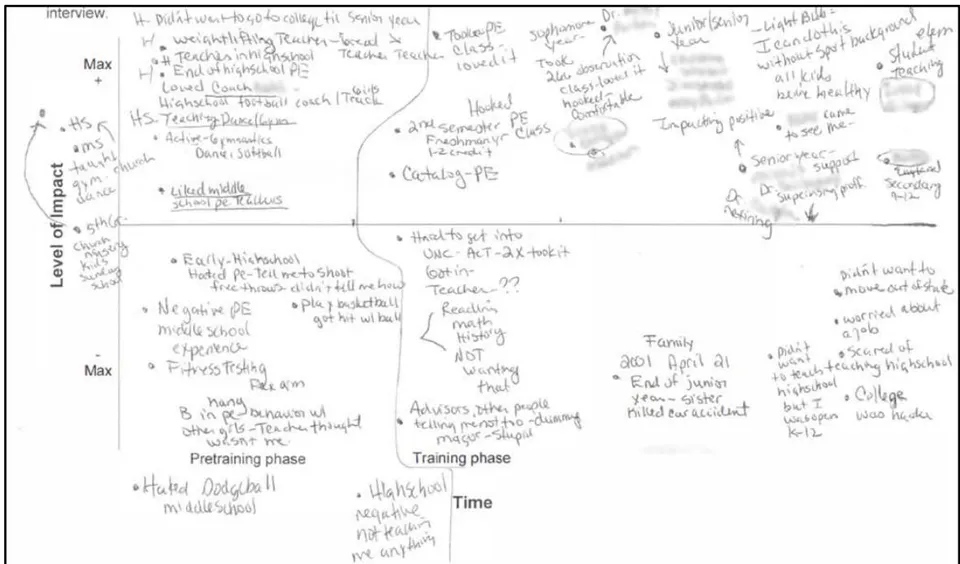 interview.
Max
+
Level of Impact
-
Max
H. Didn't want to go to college til senior year
H • weightlifting Teacher-
• # Teachers in highschool
H • End of highschool PE
Loved Coach
Highschool football coach / Track
HS. Teaching Dance/Gym
• Active-Gymnastics
Dance, Softball
• Liked middle
school pe Teachers
• HS
• MS
taught
gym-church
dance
• 5th Gr.
church
nursery
kids
Sunday
school
• Took a PE
class-
loved it
Hooked
• 2nd semester PE
Freshman yr Class
1-2 credit
• Catalog-PE
sophomore
year-
Took
observation
class-loved it
hooked-
comfortable
Dr.
• junior/senior
year
-Light Bulb-
I can do this
without sport background
all kids
being healthy
Impacting positive
• came
to see me-
• Student
Teaching
elem
• Senior year-
support
Dr.
supervising proff.
Dr
retiring
secondary
9-12
• Early-Highschool
Hated pe-Tell me to shoot
free throws-didn't tell me how
• play basketball
got hit w/ ball
• Negative PE
middle school
experience
• Fitness Testing
Flex arm
hang
B in pe-behavior w/
other girls-Teacher thought
wasn't me.
• Hard to get into
UNC-ACT-2X-took it
Got in-
Teacher-??
Reading
math
History
NOT
wanting
that
• Advisors, other people
telling me not too-dummy
major-stupid
Family
2001 April 21
• End of junior
year-sister
killed car accident
Didn't want to
• move out of state
• worried about
a job
• Scared of
teaching highschool
• Didn't
want
to teach
highschool
but I
was open
K-12
• College
was harder
Pretraining phase
Training phase
Time
• Hated Dodgeball
middle school
• Highschool
negative
not teachin
me anything